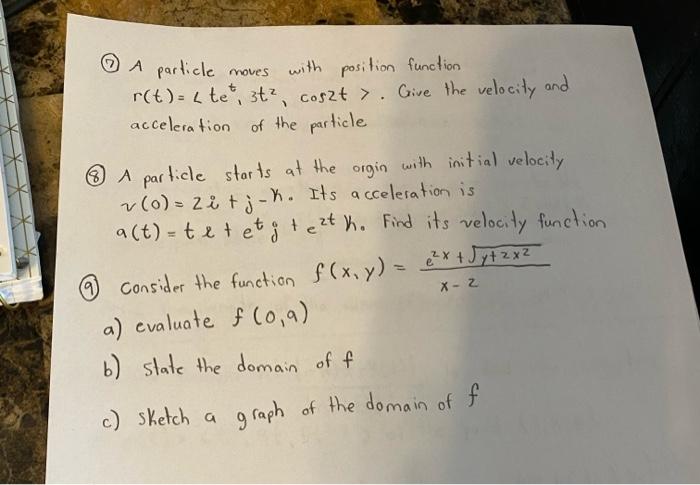 ⑦ A particle moves with position function
r(t) = < te^t, 3t², cos2t >. Give the velocity and
acceleration of the particle
⑧ A particle starts at the orgin with initial velocity
v(0) = 2i + j - k. Its acceleration is
a(t) = ti + e^t j + e^2t k. Find its velocity function
⑨ Consider the function f(x,y) = (e^2x + √(y+2x²)) / (x-2)
a) evaluate f(0,9)
b) state the domain of f
c) sketch a graph of the domain of f